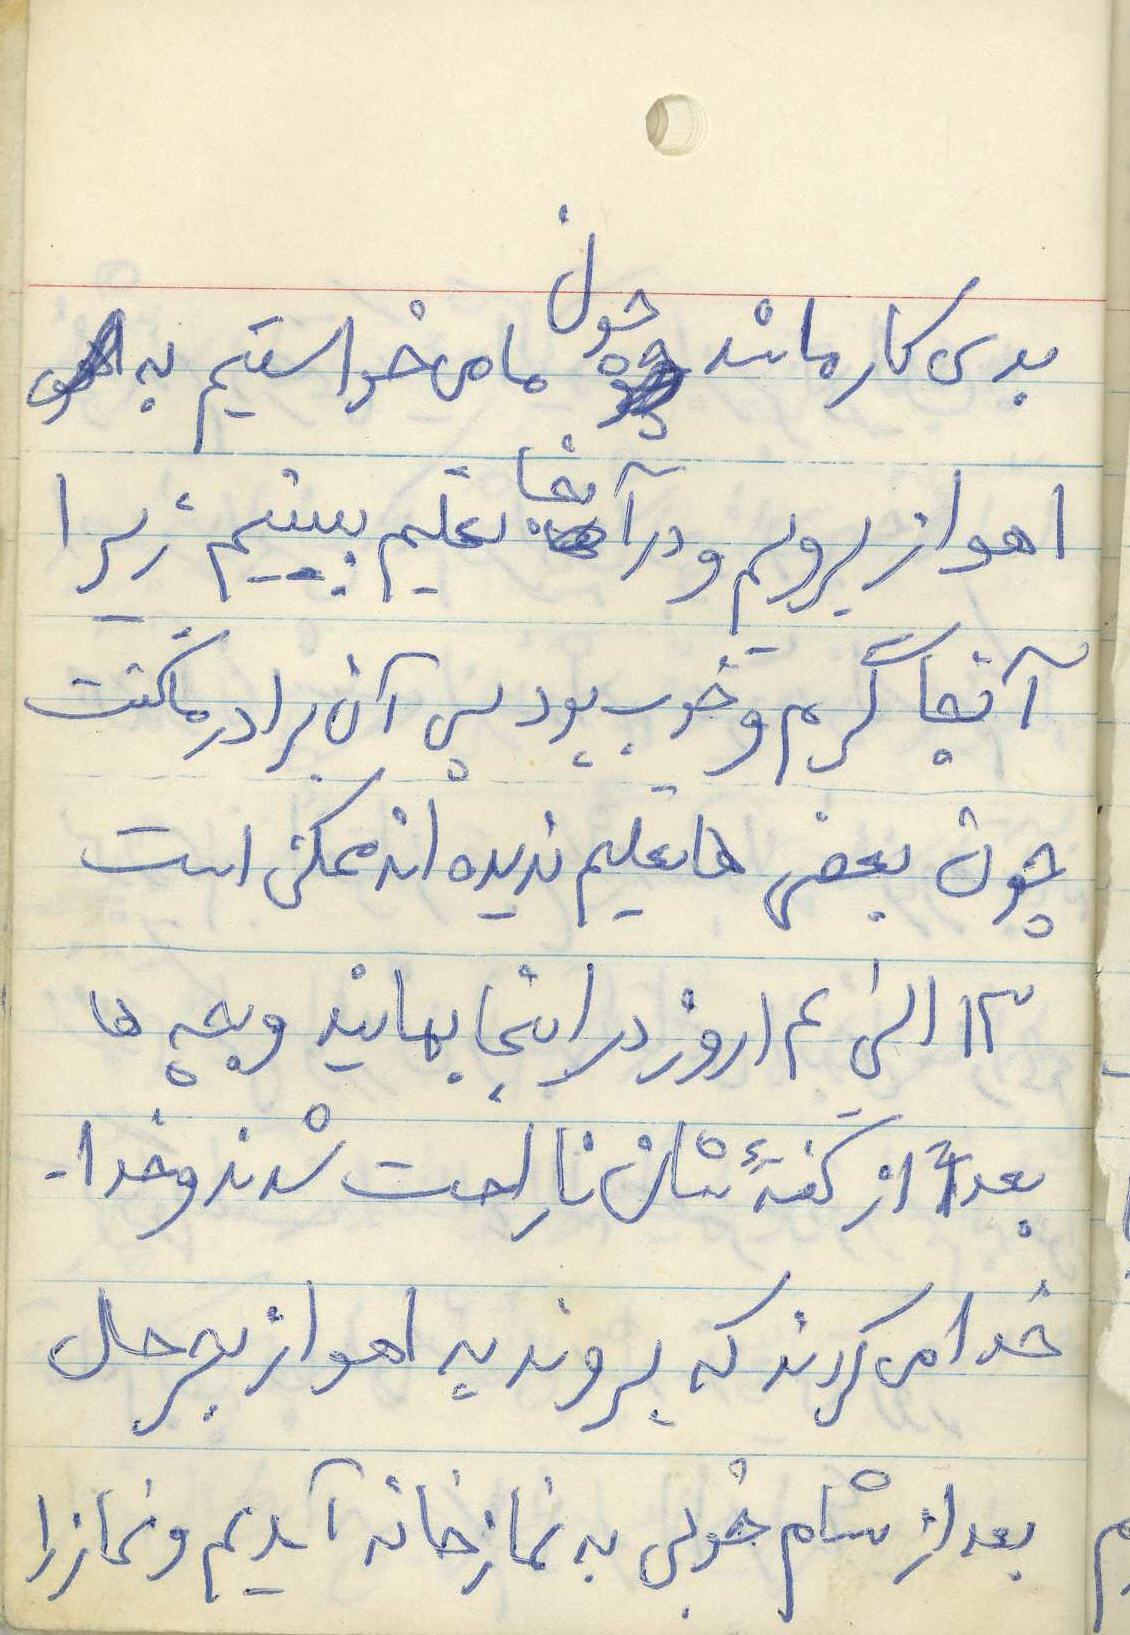 بدی کار ماند چون ما می خواستیم به
اهواز برویم و در آنجا تعلیم ببینیم، زیرا
آنجا گرم و خوب بود پس آن برادر ما گفت
چون بعضی ها تعلیم ندیده اند ممکن است
۱۳ الی ۱۴ روز در اینجا بمانید و بچه ها
بعد از گفتهٔ شان ناراحت شدند و خدا-
خدا می کردند که بروند به اهواز بهر حال
بعد از شام خوبی به نماز خانه آمدیم و نماز را